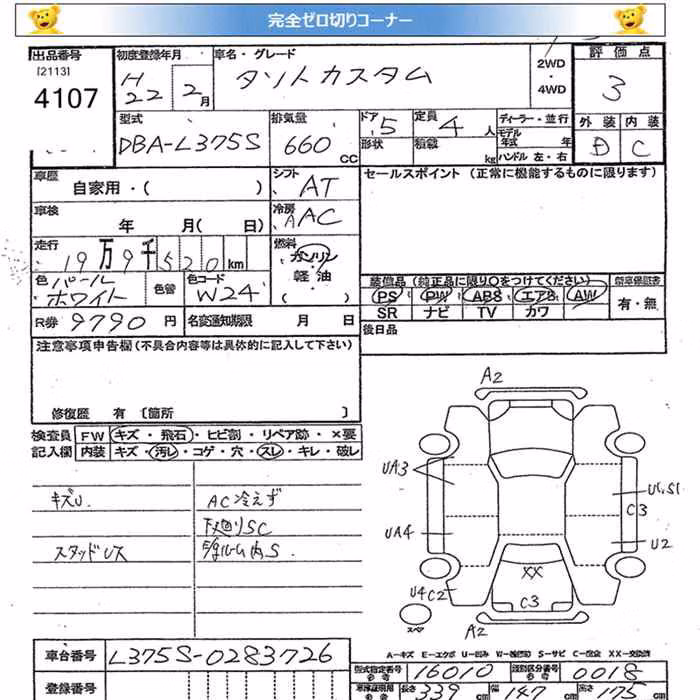 完全ゼロ切りコーナー
出品番号 初度登録年月 車名・グレード 2WD 評価点
[2113] H 22 2月 タントカスタム ・ 3
4107 4WD
型式 排気量 ドア 定員 ディーラー・並行 外装 内装
DBA-L375S 660 CC 5 4人 モデル年式 年 D C
形状 積載 kg ハンドル 左・右
車歴 自家用・( ) シフト AT セールスポイント (正常に機能するものに限ります)
車検 年 月( 日) 冷房 AAC
走行 19万9千520km 燃料 ガソリン・軽油 ( )
色 パールホワイト 色替 色コード W24 装備品 (純正品に限り○をつけてください) 新車保証書
PS PW ABS エアB AW 有・無
R券 9790円 名変通知期限 月 日 SR ナビ TV カワ
注意事項申告欄(不具合内容等は具体的に記入して下さい) 後日品
修復歴 有 [箇所 ]
検査員 FW キズ・飛石・ヒビ割・リペア跡・×要
記入欄 内装 キズ・汚レ・コゲ・穴・スレ・キレ・破レ
キズU AC冷えず
下廻りSC
スタッドレス
A2
UA3
U1,S1
C3
UA4
U2
XX
U4C2
C3
スペア
A2
A-キズ E-エクボ U-凹み W-補修跡 S-サビ C-腐食 XX-交換済
車台番号 L375S-0283726 型式指定番号 16010 類別区分番号 0018
登録番号 長さ 339cm 幅 147cm 高さ 175cm